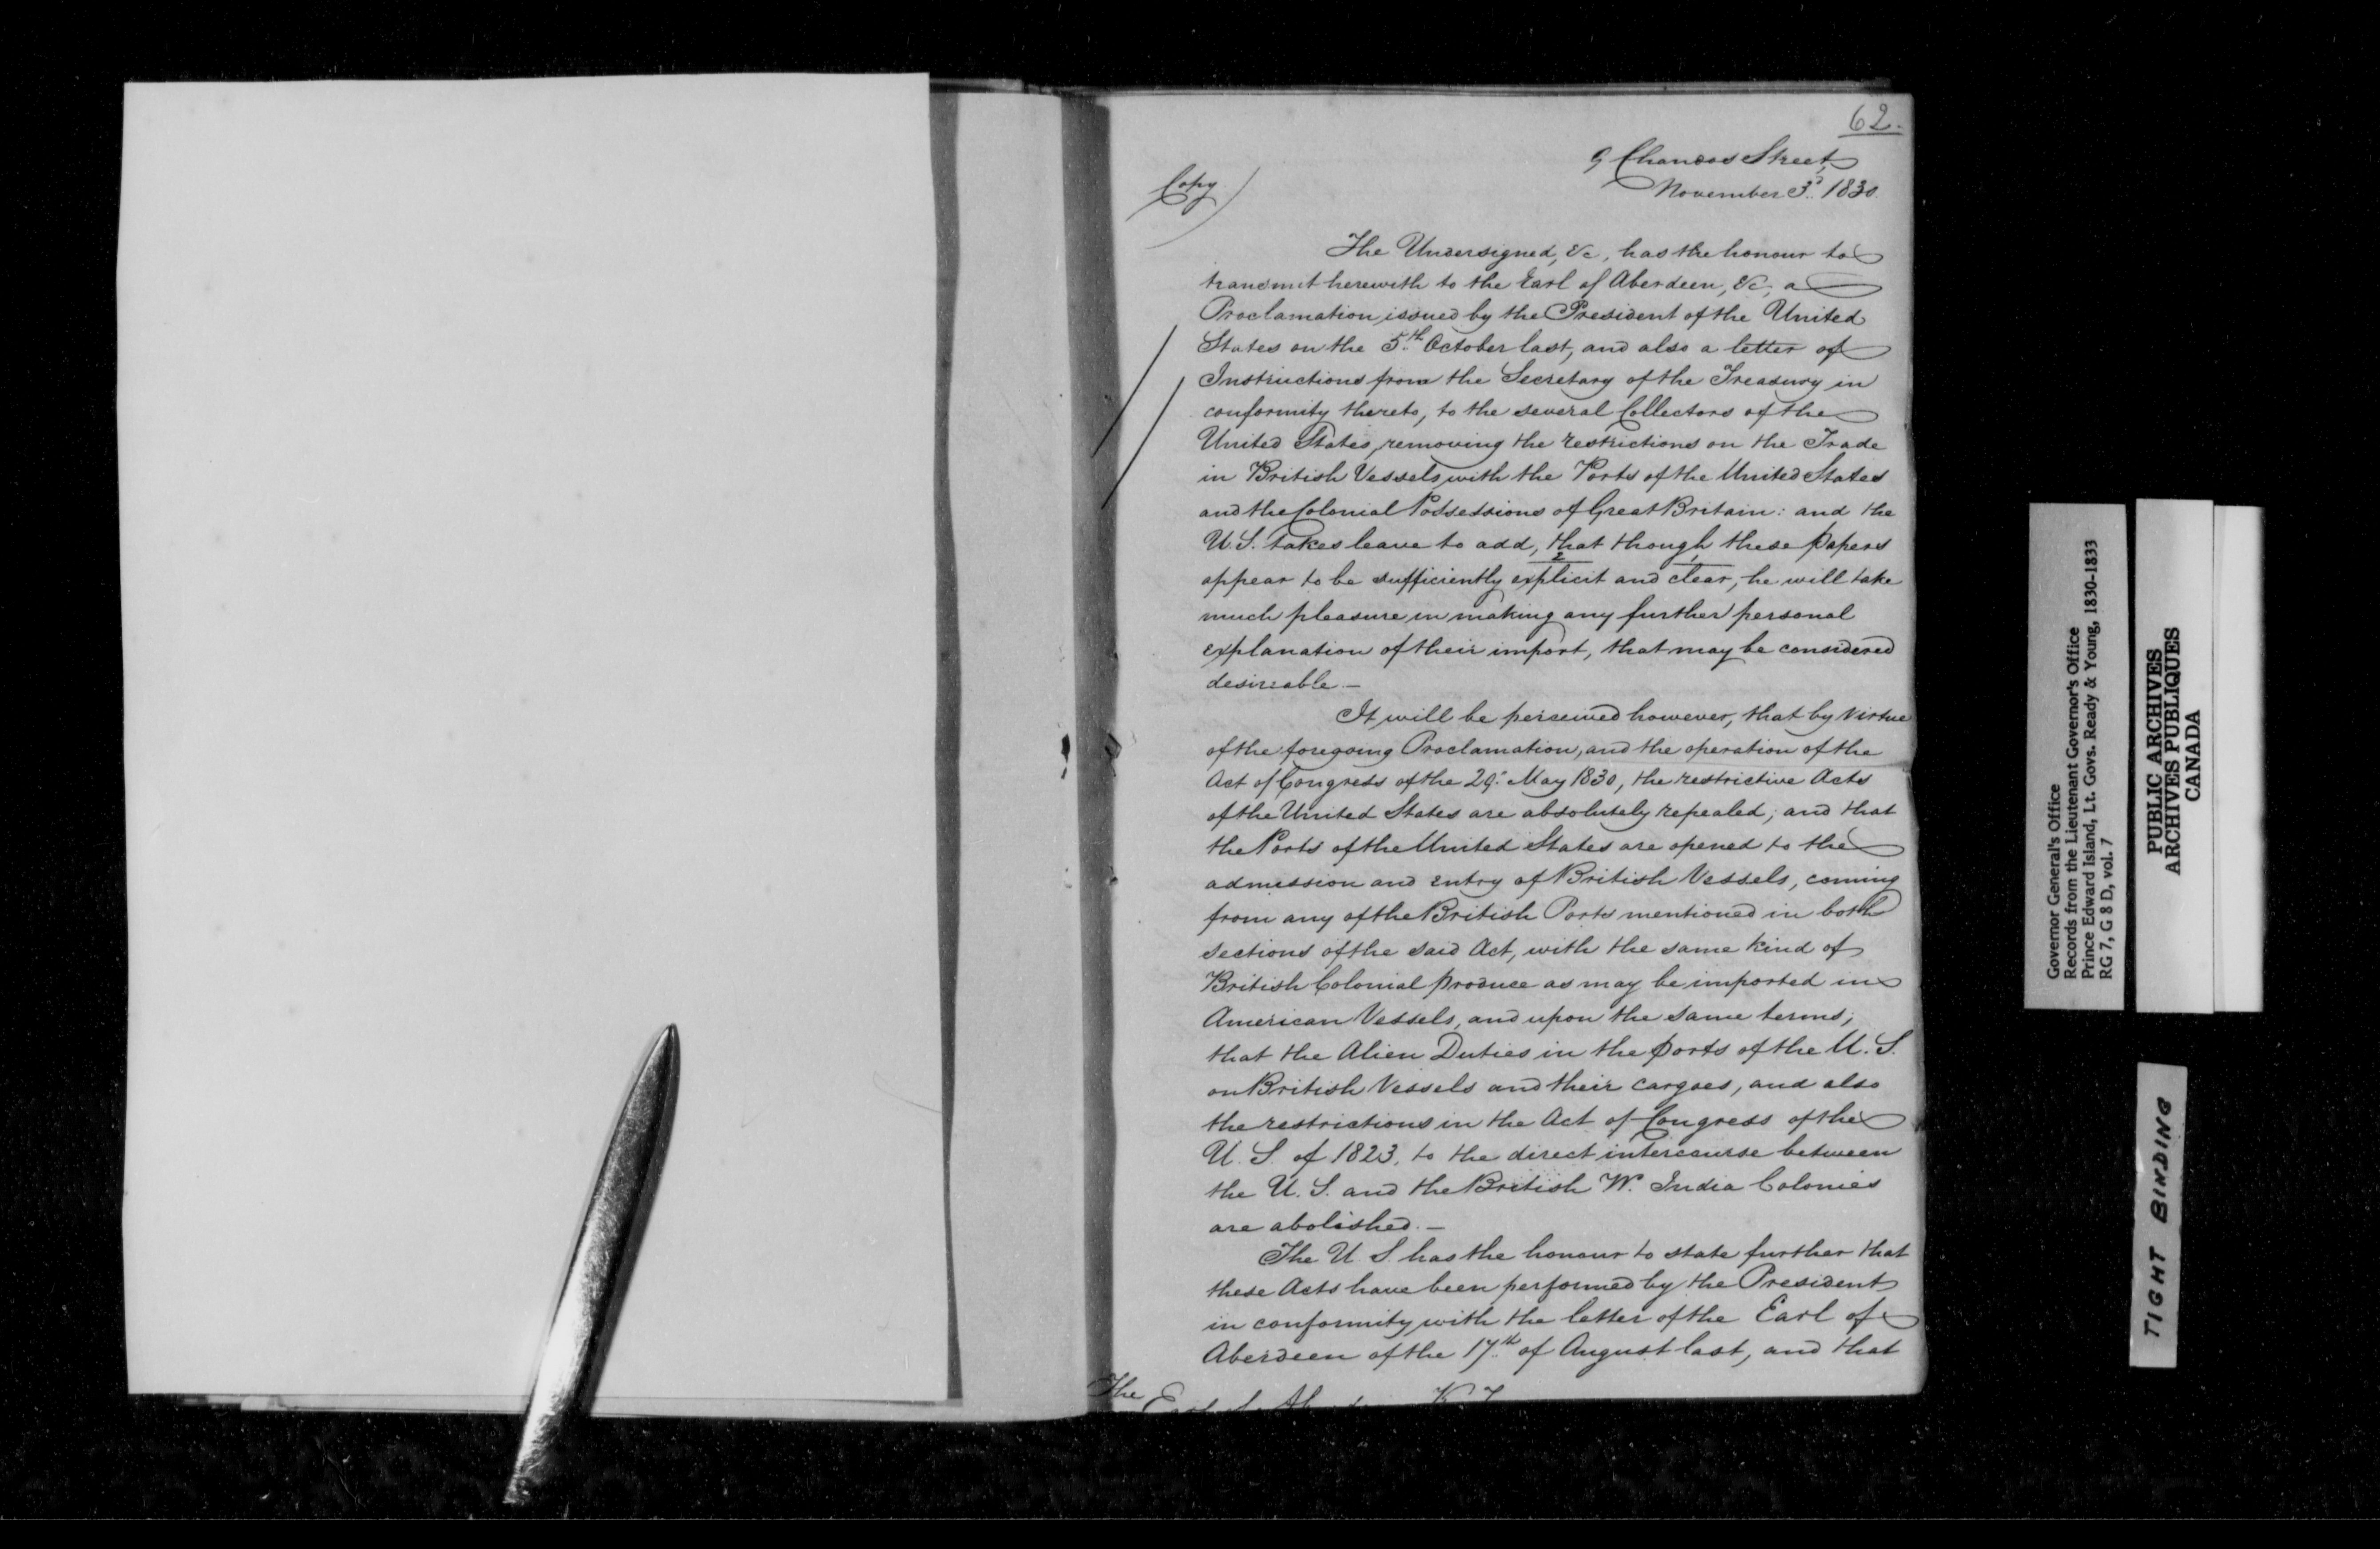 62.
9 Chandos Street,
November 3d. 1830.
Copy
The Undersigned, &c, has the honour to
transmit herewith to the Earl of Aberdeen, &c, a
Proclamation issued by the President of the United
States on the 5.th October last, and also a letter of
Instructions from the Secretary of the Treasury in
conformity thereto, to the several Collectors of the
United States, removing the restrictions on the Trade
in British Vessels with the Ports of the United States
and the Colonial Possessions of Great Britain: and the
U.S. takes leave to add, that though these papers
appear to be sufficiently explicit and clear, he will take
much pleasure in making any further personal
explanation of their import, that may be considered
desireable.—
It will be perceived however, that by virtue
of the foregoing Proclamation, and the operation of the
Act of Congress of the 29. May 1830, the restrictive Acts
of the United States are absolutely repealed; and that
the Ports of the United States are opened to the
admission and entry of British Vessels, coming
from any of the British Ports mentioned in both
sections of the said Act, with the same kind of
British Colonial produce as may be imported in
American Vessels, and upon the same terms;
that the Alien Duties in the ports of the U.S.
on British Vessels and their cargoes, and also
the restrictions in the Act of Congress of the
U.S. of 1823, to the direct intercourse between
the U.S. and the British W. India Colonies
are abolished.—
The U.S. has the honour to state further that
these Acts have been performed by the President
in conformity with the letter of the Earl of
Aberdeen of the 17.th of August last, and that
The
Governor General's Office
Records from the Lieutenant Governor's Office
Prince Edward Island, Lt. Govs. Ready & Young, 1830-1833
RG 7, G 8 D, vol. 7
PUBLIC ARCHIVES
ARCHIVES PUBLIQUES
CANADA
TIGHT BINDING